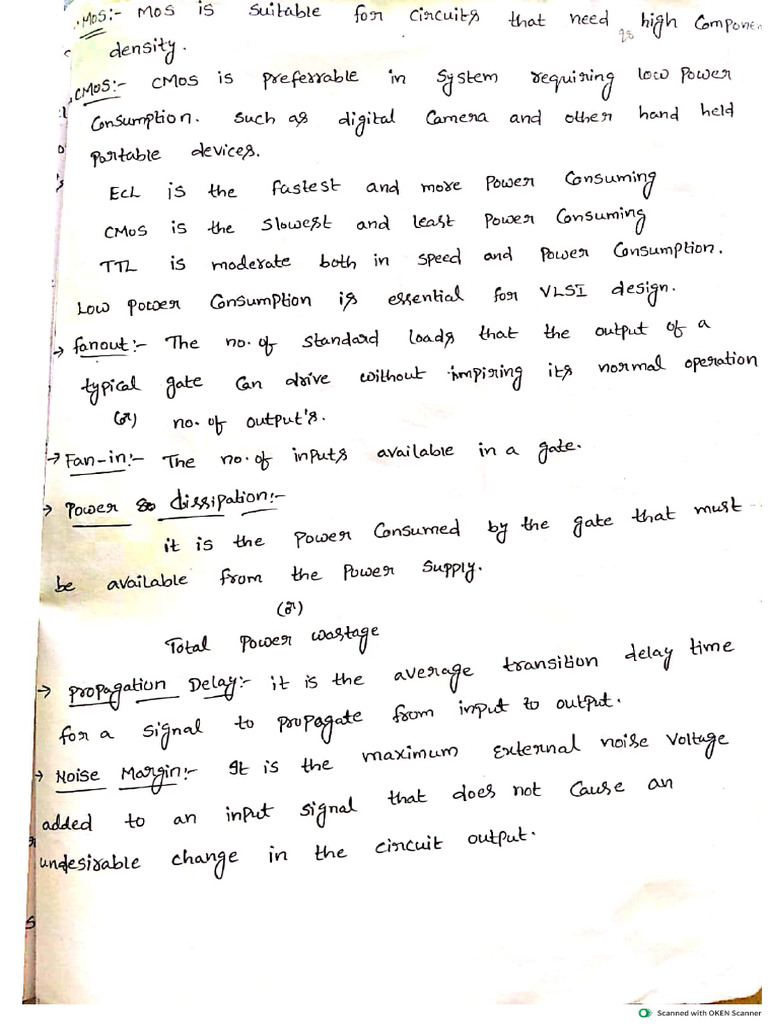 MOS:- MOS is suitable for circuits that need high Componen
density.
CMOS:- CMOS is preferrable in System requiring low Power
Consumption. Such as digital Camera and other hand held
Partable devices.
ECL is the fastest and more Power Consuming
CMOS is the slowest and least Power Consuming
TTL is moderate both in speed and Power Consumption.
Low power Consumption is essential for VLSI design.
→ fanout:- The no. of standard loads that the output of a
typical gate can drive without impiring its normal operation
(or) no. of output's.
→ Fan-in:- The no. of inputs available in a gate.
→ Power dissipation:-
it is the Power Consumed by the gate that must
be available from the Power Supply.
(or)
Total Power wastage
→ Propagation Delay:- it is the average transition delay time
for a signal to propagate from input to output.
→ Noise Margin:- It is the maximum External noise Voltage
added to an input signal that does not Cause an
undesirable change in the circuit output.
Scanned with OKEN Scanner